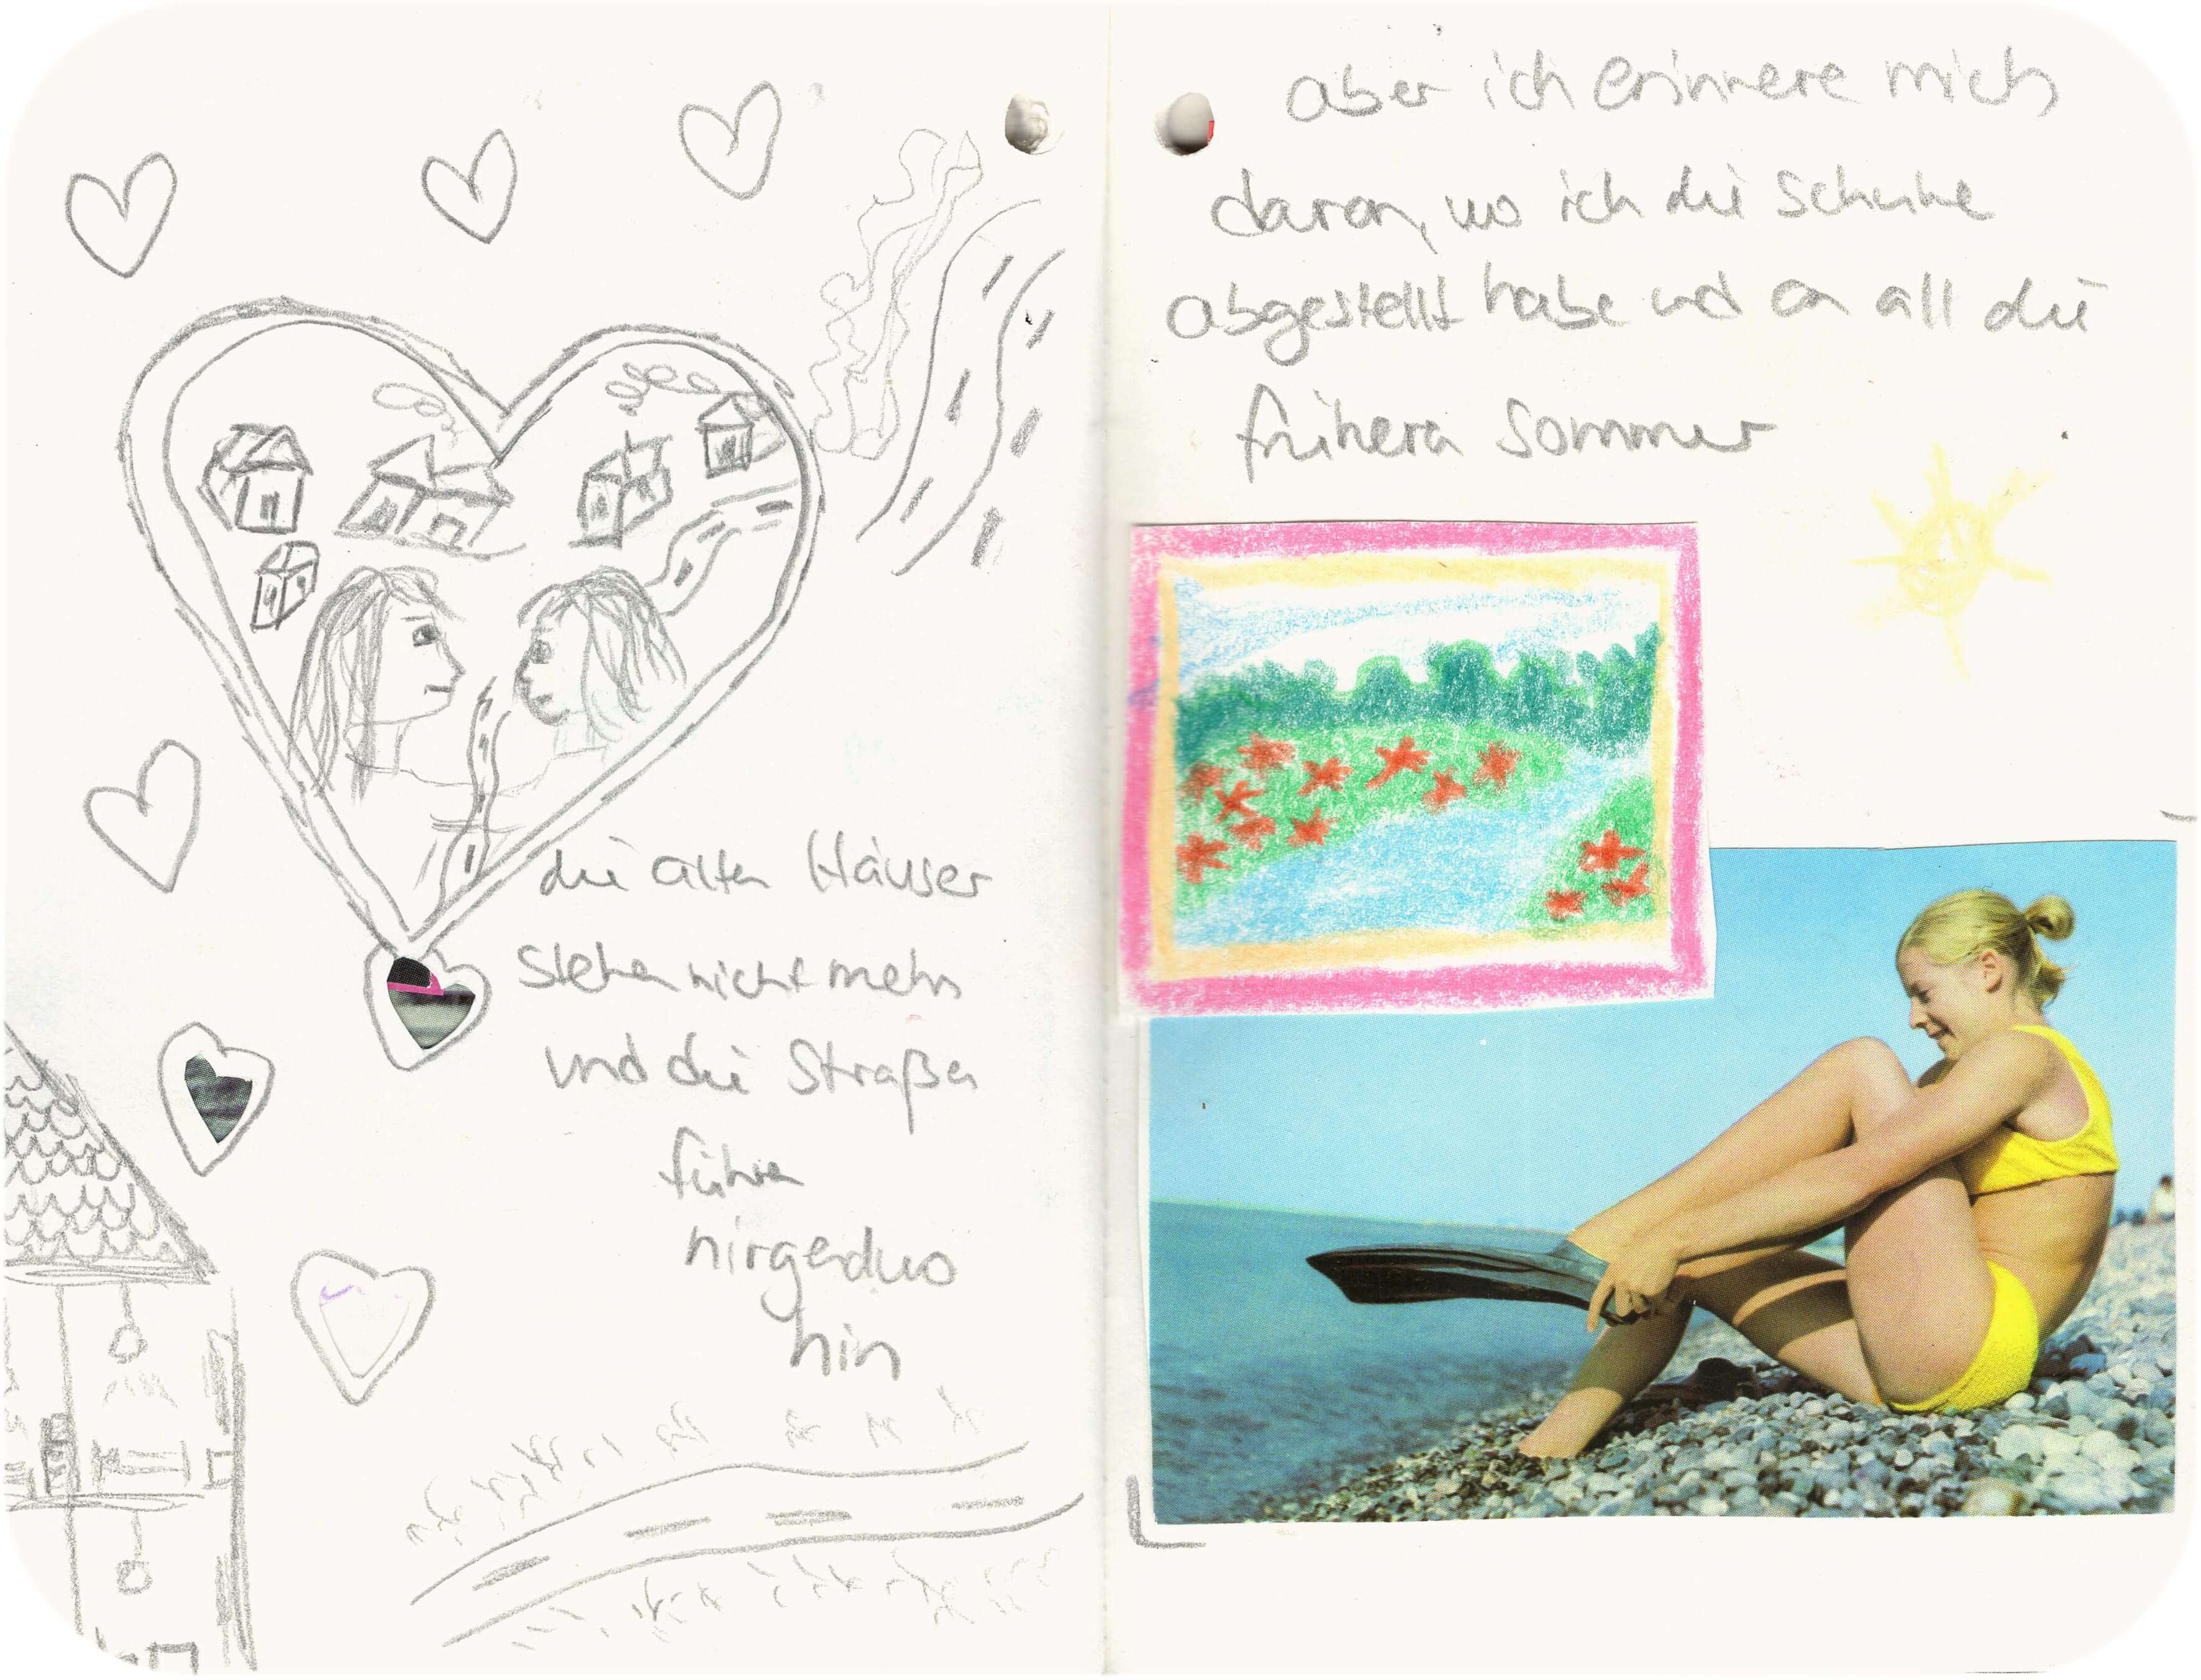 die alten Häuser
stehen nicht mehr
und die Straßen
führen
nirgendwo
hin
aber ich erinnere mich
daran, wo ich die Schuhe
abgestellt habe und an all die
frühern Sommer